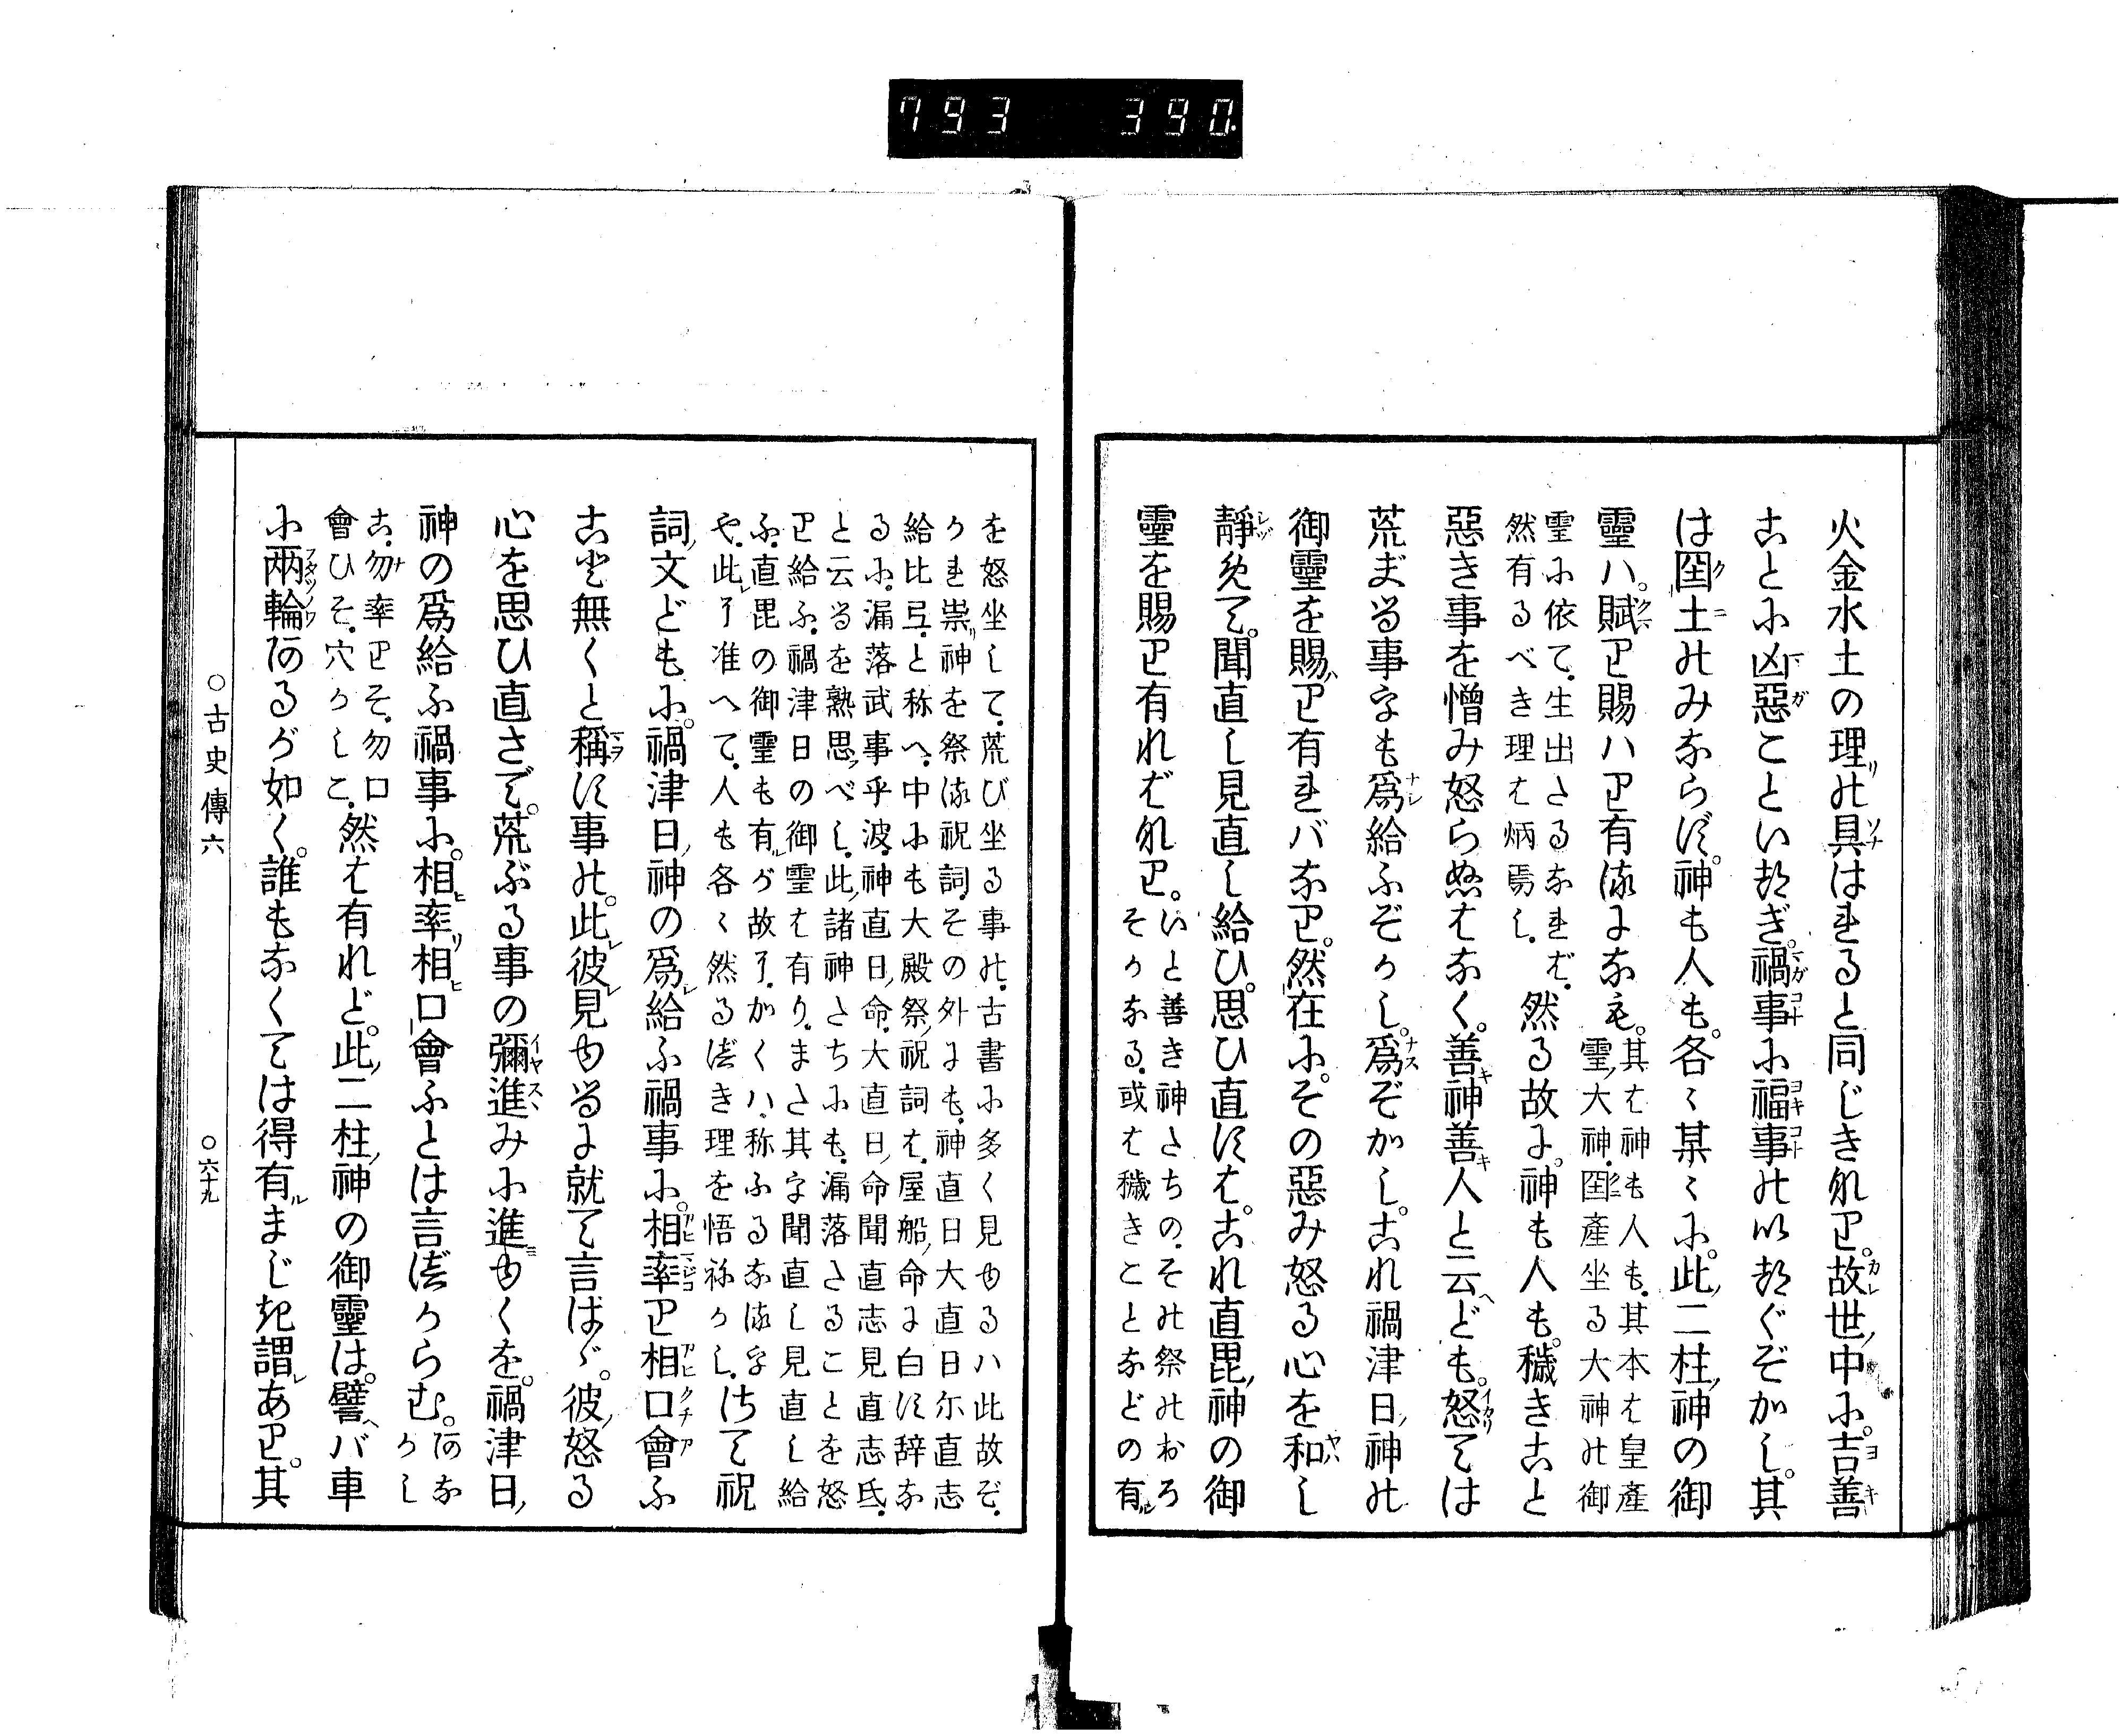 793 390.
火金水土の理の具はれると同じきなり。故世ノ中に。吉善
ことに凶惡こといつぎ。禍事に福事のいつぐぞかし。其
は国土のみならず。神も人も。各〻某〻に。此ノ二柱ノ神の御
靈ハ。賦り賜ハり有るになも。其は神も人も。其本は皇產
靈ノ大神。国產坐る大神の御
靈に依て。生出たるなれば。
然有るべき理は炳焉し。
然る故に。神も人も。穢きこと
惡き事を憎み怒らぬはなく。善神善人と云ヘども。怒ては
荒まる事をも爲給ふぞかし。爲ぞかし。これ禍津日ノ神の
御靈を賜り有れバなり。然在に。その惡み怒る心を和し
靜めて。聞直し見直し給ひ。思ひ直すは。これ直毘ノ神の御
靈を賜り有ればなり。いと善き神たちの。その祭のおろ
そかなる。或は穢きことなどの有ル
を怒坐して。荒び坐る事の。古書に多く見ゆるハ此故ぞ。
かれ祟リ神を祭る祝詞。その外にも。神直日大直日尓直志
給比弖。と称へ。中にも大殿祭ノ祝詞は。屋船ノ命に白す辞な
るに。漏落武事乎波。神直日ノ命。大直日ノ命聞直志見直志氐。
と云るを熟思ふべし。此ノ諸神たちにも。漏落たることを怒
り給ふ。禍津日の御霊は有り。また其を聞直し見直し給
ふ。直毘の御霊も有ルが故に。かくハ称ふるなるを
や。此レに准へて。人も各〻然るべき理を悟ねかし。さて祝
詞ノ文どもに。禍津日ノ神の爲レ給ふ禍事に。相率り相口會ふ
こと無くと稱す事の。此レ彼レ見ゆるに就て言はゞ。彼ノ怒る
心を思ひ直さで。荒ぶる事の彌進みに進ゆくを。禍津日ノ
神の爲給ふ禍事に。相率リ相口會ふとは言べからむ。あな
かし
こ。勿率りそ。勿口
會ひそ。穴かしこ。
然は有れど。此ノ二柱ノ神の御靈は。譬ヘバ車
に兩輪あるが如く。誰もなくては得有ルまじき謂レあり。其
○古史傳六
○六十九